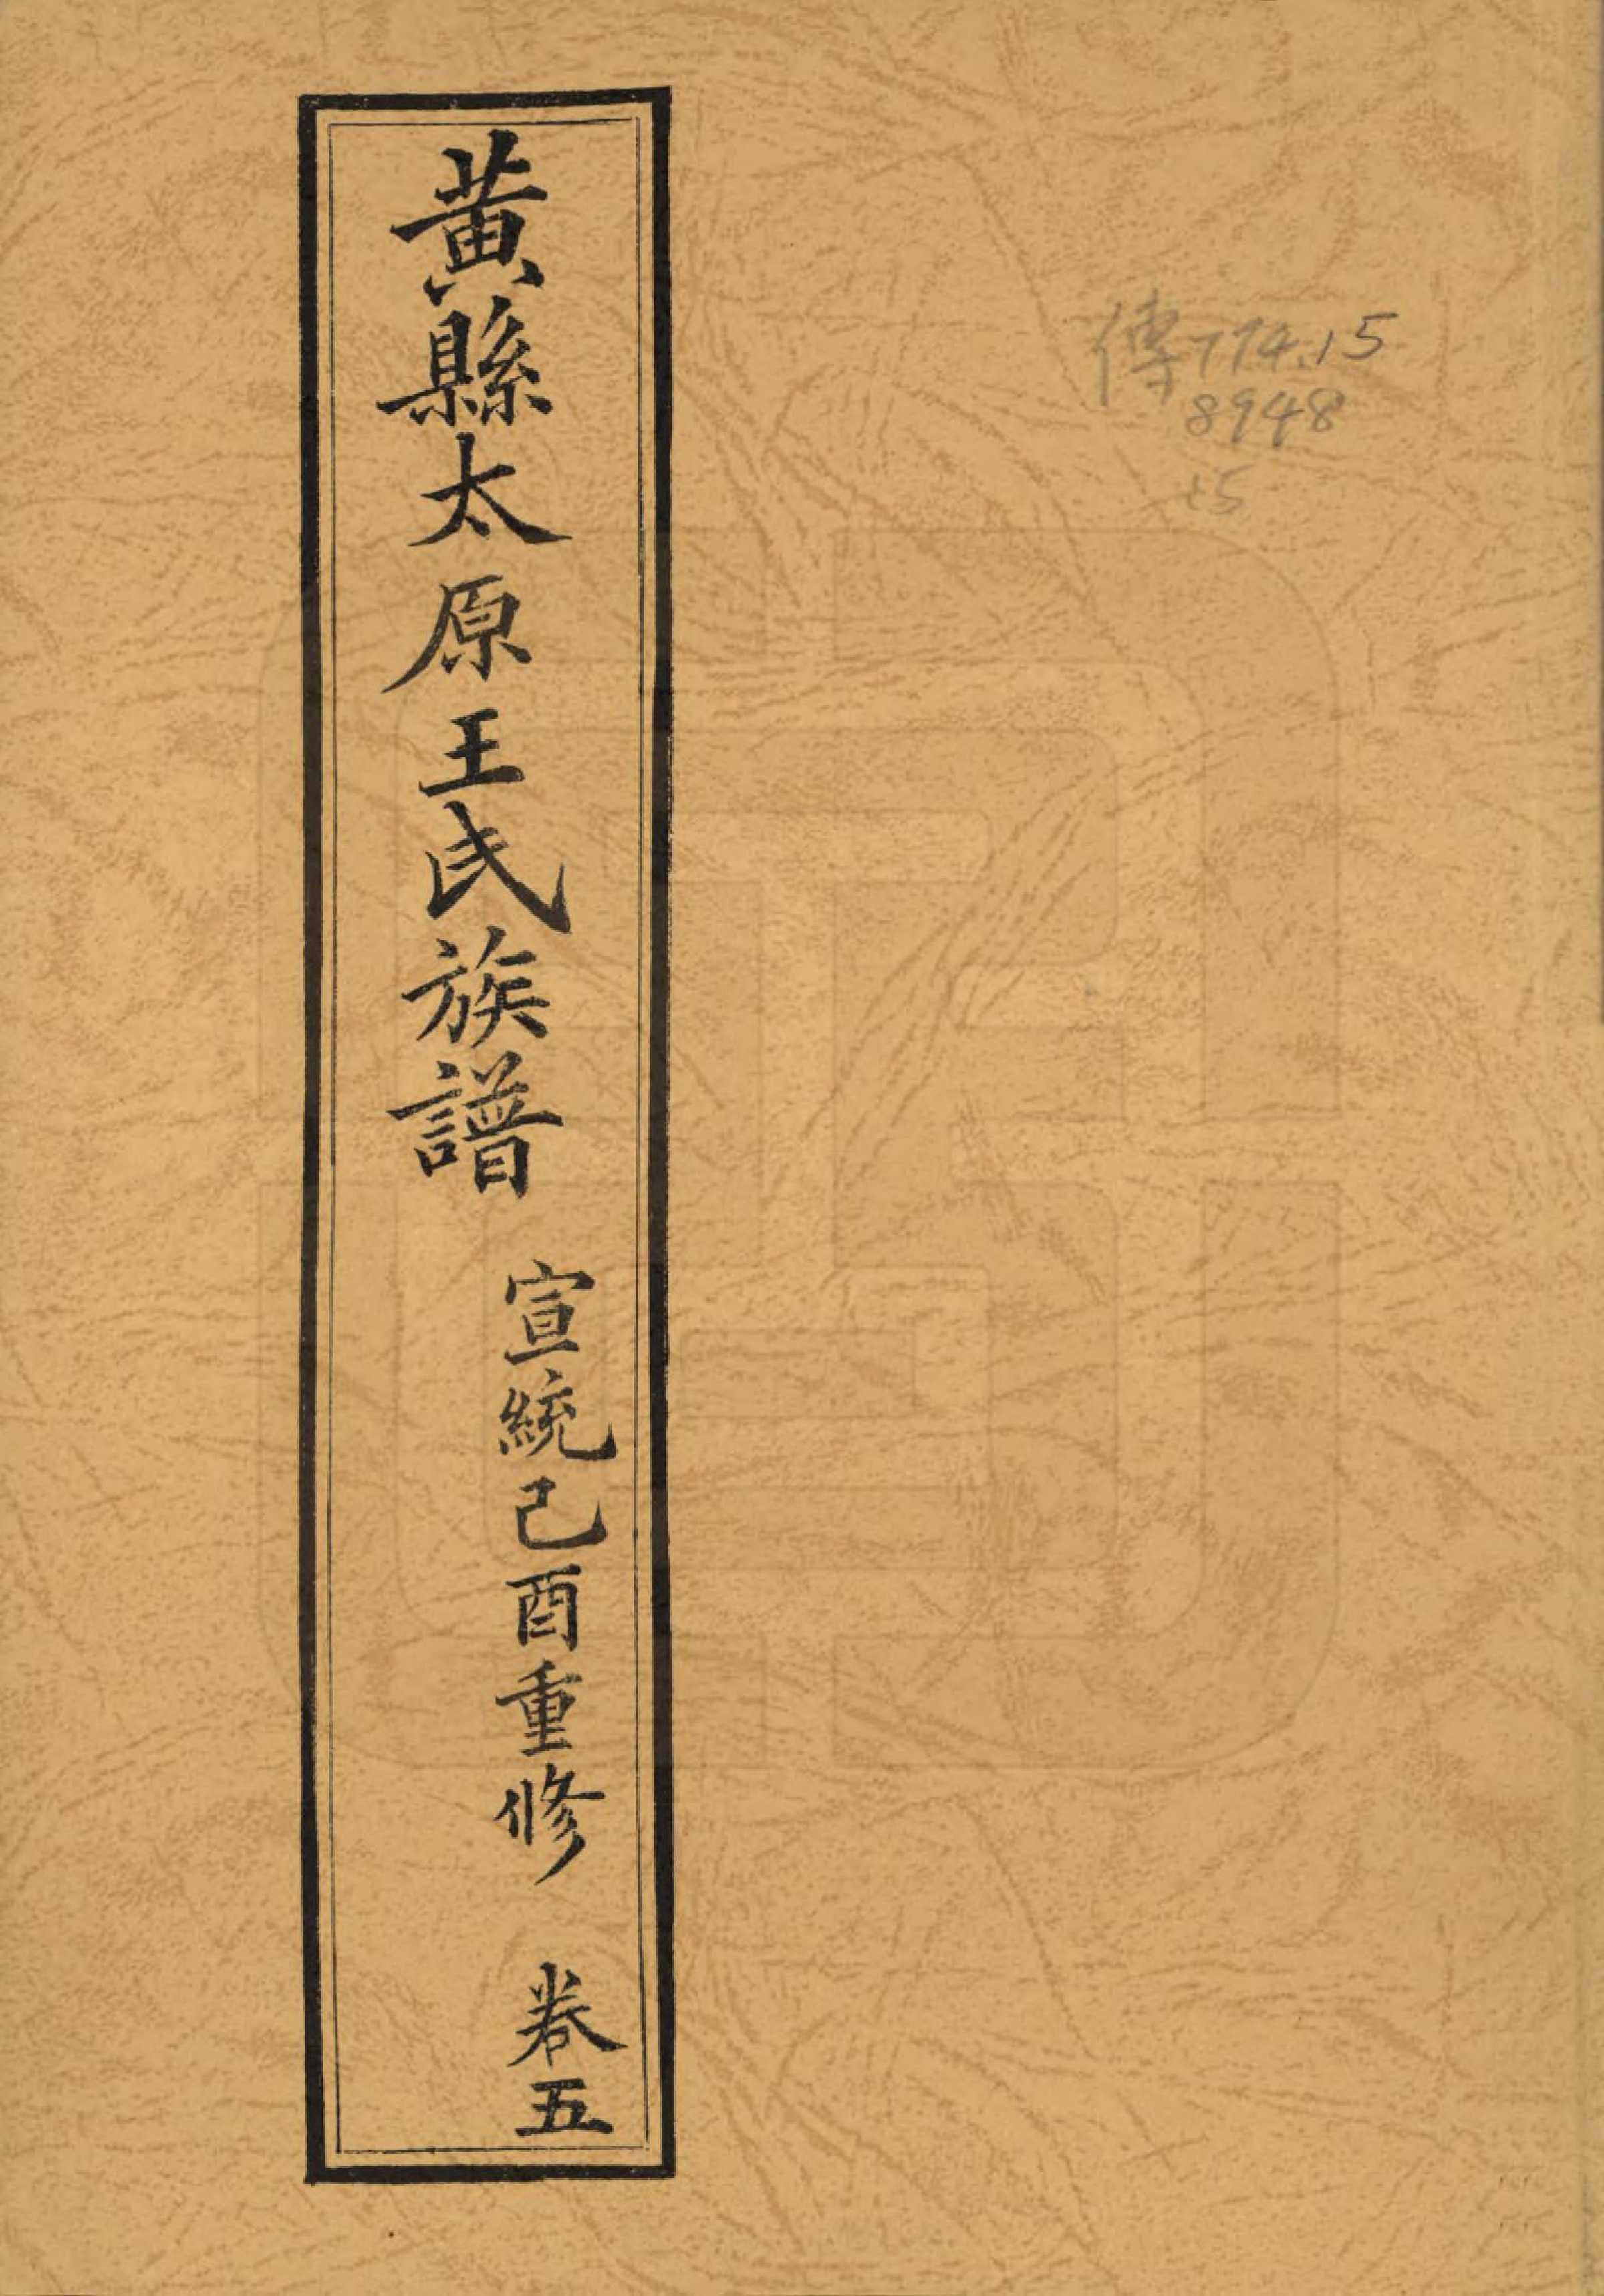 傳774.15
8948
15
黄縣太原王氏族譜
宣統己酉重修
卷五